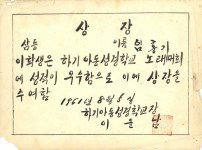 상 장
삼등
이름 염 홍기
이 학생은 하기 아동성경학교 노래대회
에 성적이 우수함으로 이에 상장을
수여함
1961년 8월 6일
하기아동성경학교장
이